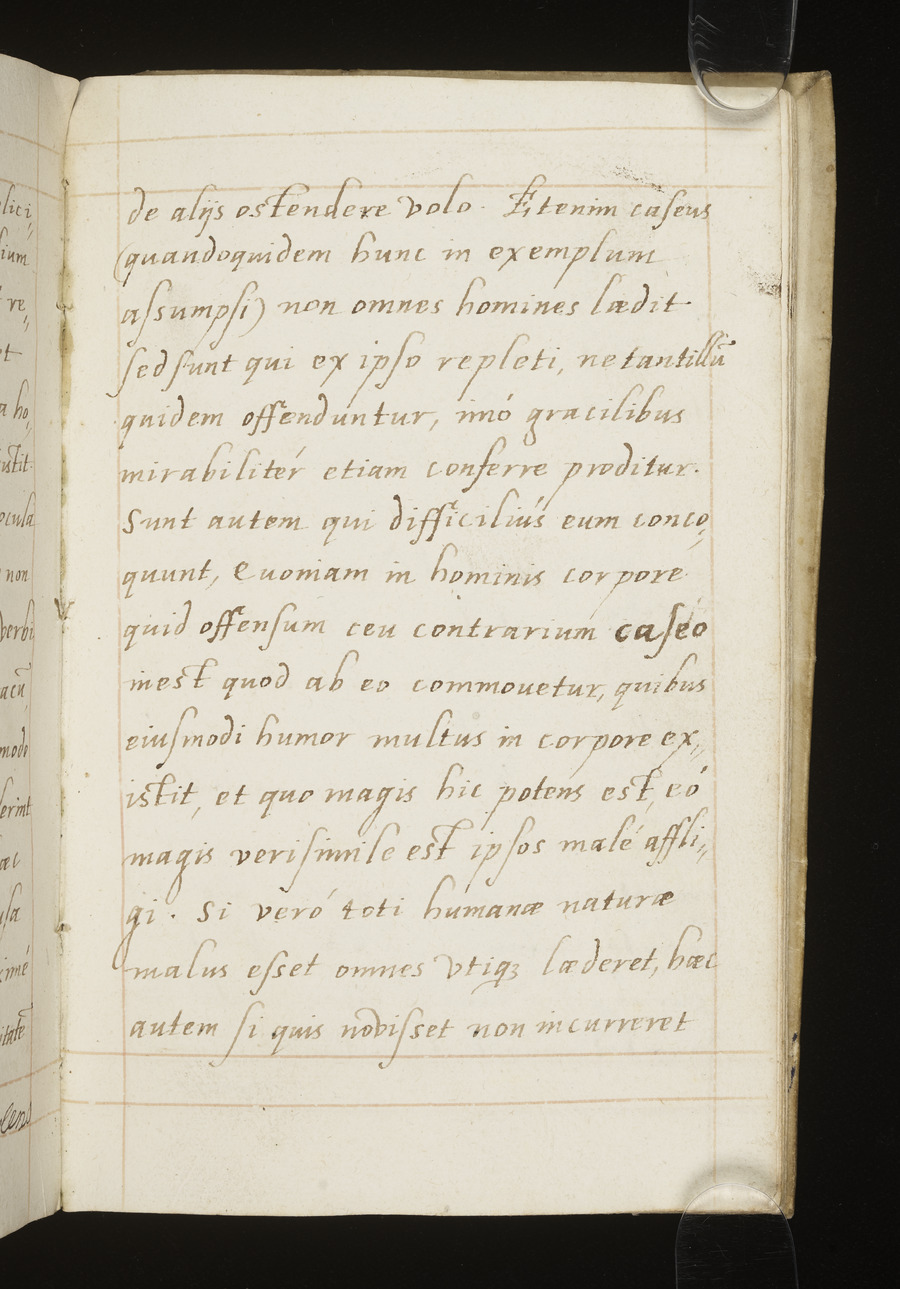 lici
ium
re
et
a ho
istit
ocula
non
verbi
acū
modi
erint
æc
usa
imé
itatē
de alijs ostendere volo. Etenim caseus
(quandoquidem hunc in exemplum
assumpsi) non omnes homines lædit
sed sunt qui ex ipso repleti, ne tantillū
quidem offenduntur, imó gracilibus
mirabilitér etiam conferre proditur.
Sunt autem qui difficiliús eum conco⸗
quunt, Quoniam in hominis corpore
quid offensum ceu contrarium caseo
inest quod ab eo commouetur, quibus
eiusmodi humor multus in corpore ex⸗
istit, et quo magis hic potens est, eó
magis verisimile est ipsos malé affli⸗
gi. Si veró toti humanæ naturæ
malus esset omnes vtiqꝫ læderet, hæc
autem si quis novisset non incurreret